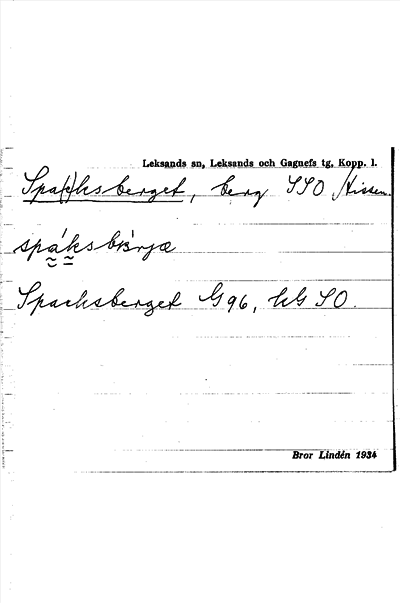 Leksands sn, Leksands och Gagnefs tg, Kopp. l.
Spa(c)ksberget, berg SSO Hissen.
spáksbärjæ
Spacksberget G96, HG SO.
Bror Lindén 1934